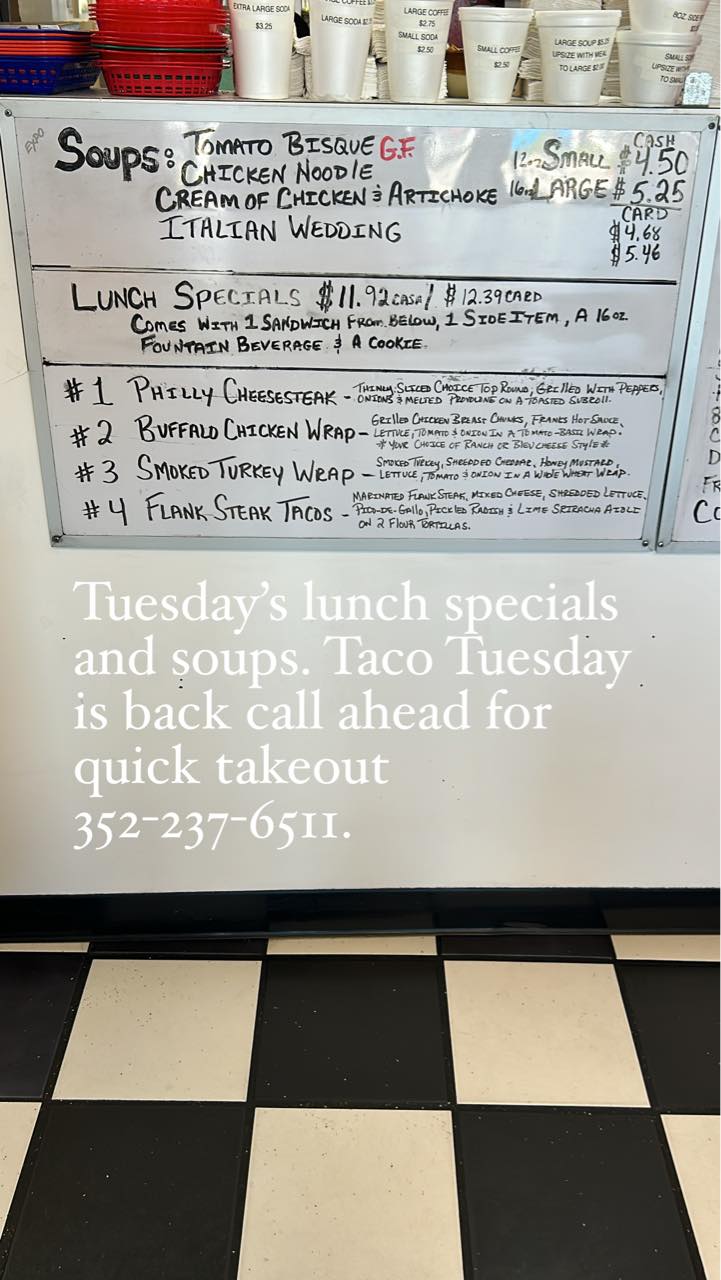 EXTRA LARGE SODA
$3.25
LARGE SODA
LARGE COFFEE
$2.75
SMALL SODA
$2.50
SMALL COFFEE
$2.50
LARGE SOUP
UPSIZE WITH MEAL
TO LARGE
8OZ SIDE
SMALL
UPSIZE WITH
TO SMALL
EXPO
SOUPS: TOMATO BISQUE G.F.
CHICKEN NOODLE
CREAM OF CHICKEN & ARTICHOKE
ITALIAN WEDDING
CASH
12oz SMALL $4.50
16oz LARGE $5.25
CARD
$4.68
$5.46
LUNCH SPECIALS $11.92 CASH / $12.39 CARD
COMES WITH 1 SANDWICH FROM BELOW, 1 SIDE ITEM, A 16oz.
FOUNTAIN BEVERAGE & A COOKIE.
#1 PHILLY CHEESESTEAK - THINLY SLICED CHOICE TOP ROUND, GRILLED WITH PEPPERS,
ONIONS & MELTED PROVOLONE ON A TOASTED SUBROLL.
#2 BUFFALO CHICKEN WRAP - GRILLED CHICKEN BREAST CHUNKS, FRANKS HOT SAUCE,
LETTUCE, TOMATO & ONION IN A TOMATO-BASIL WRAP.
*YOUR CHOICE OF RANCH OR BLEU CHEESE STYLE*
#3 SMOKED TURKEY WRAP - SMOKED TURKEY, SHREDDED CHEDDAR, HONEY MUSTARD,
LETTUCE, TOMATO & ONION IN A WHOLE WHEAT WRAP.
#4 FLANK STEAK TACOS - MARINATED FLANK STEAK, MIXED CHEESE, SHREDDED LETTUCE,
PICO-DE-GALLO, PICKLED RADISH & LIME SRIRACHA AIOLI
ON 2 FLOUR TORTILLAS.
Tuesday's lunch specials
and soups. Taco Tuesday
is back call ahead for
quick takeout
352-237-6511.